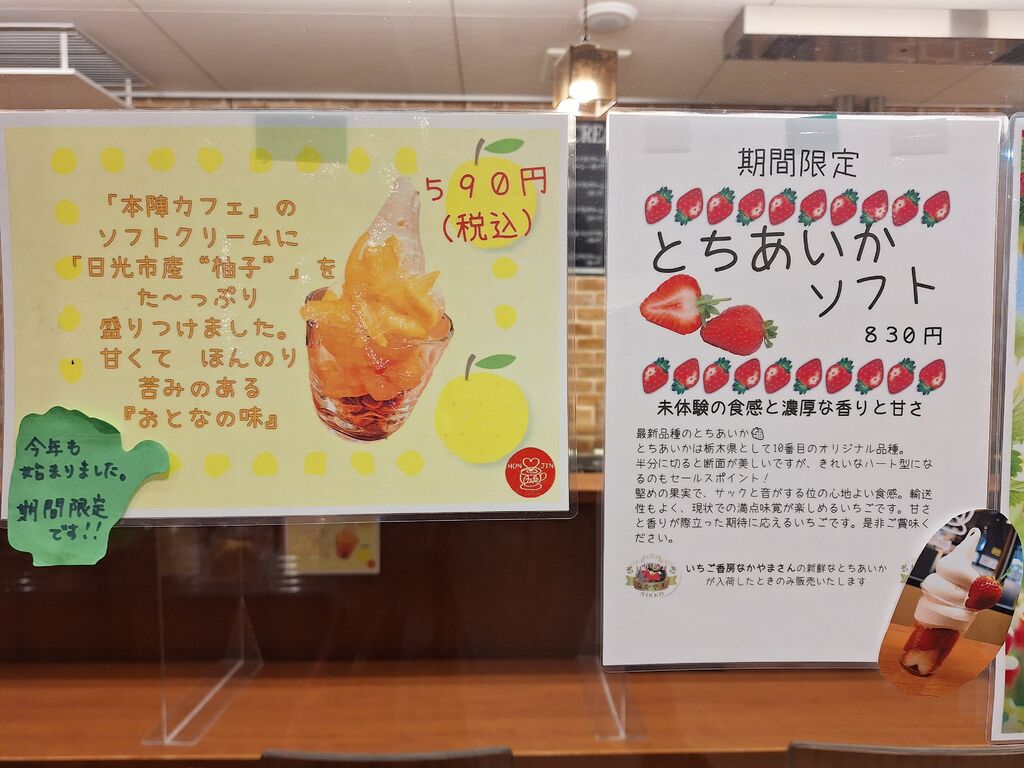 「本陣カフェ」の
ソフトクリームに
「日光市産“柚子”」を
た〜っぷり
盛りつけました。
甘くて ほんのり
苦みのある
『おとなの味』
590円
(税込)
HON JIN
今年も
始まりました。
期間限定
です!!
期間限定
とちあいか
ソフト
830円
未体験の食感と濃厚な香りと甘さ
最新品種のとちあいか
とちあいかは栃木県として10番目のオリジナル品種。
半分に切ると断面が美しいですが、きれいなハート型にな
るのもセールスポイント!
堅めの果実で、サックと音がする位の心地よい食感。輸送
性もよく、現状での満点味覚が楽しめるいちごです。甘さ
と香りが際立った期待に応えるいちごです。是非ご賞味く
ださい。
いちご香房なかやまさんの新鮮なとちあいか
が入荷したときのみ販売いたします
NIKKO